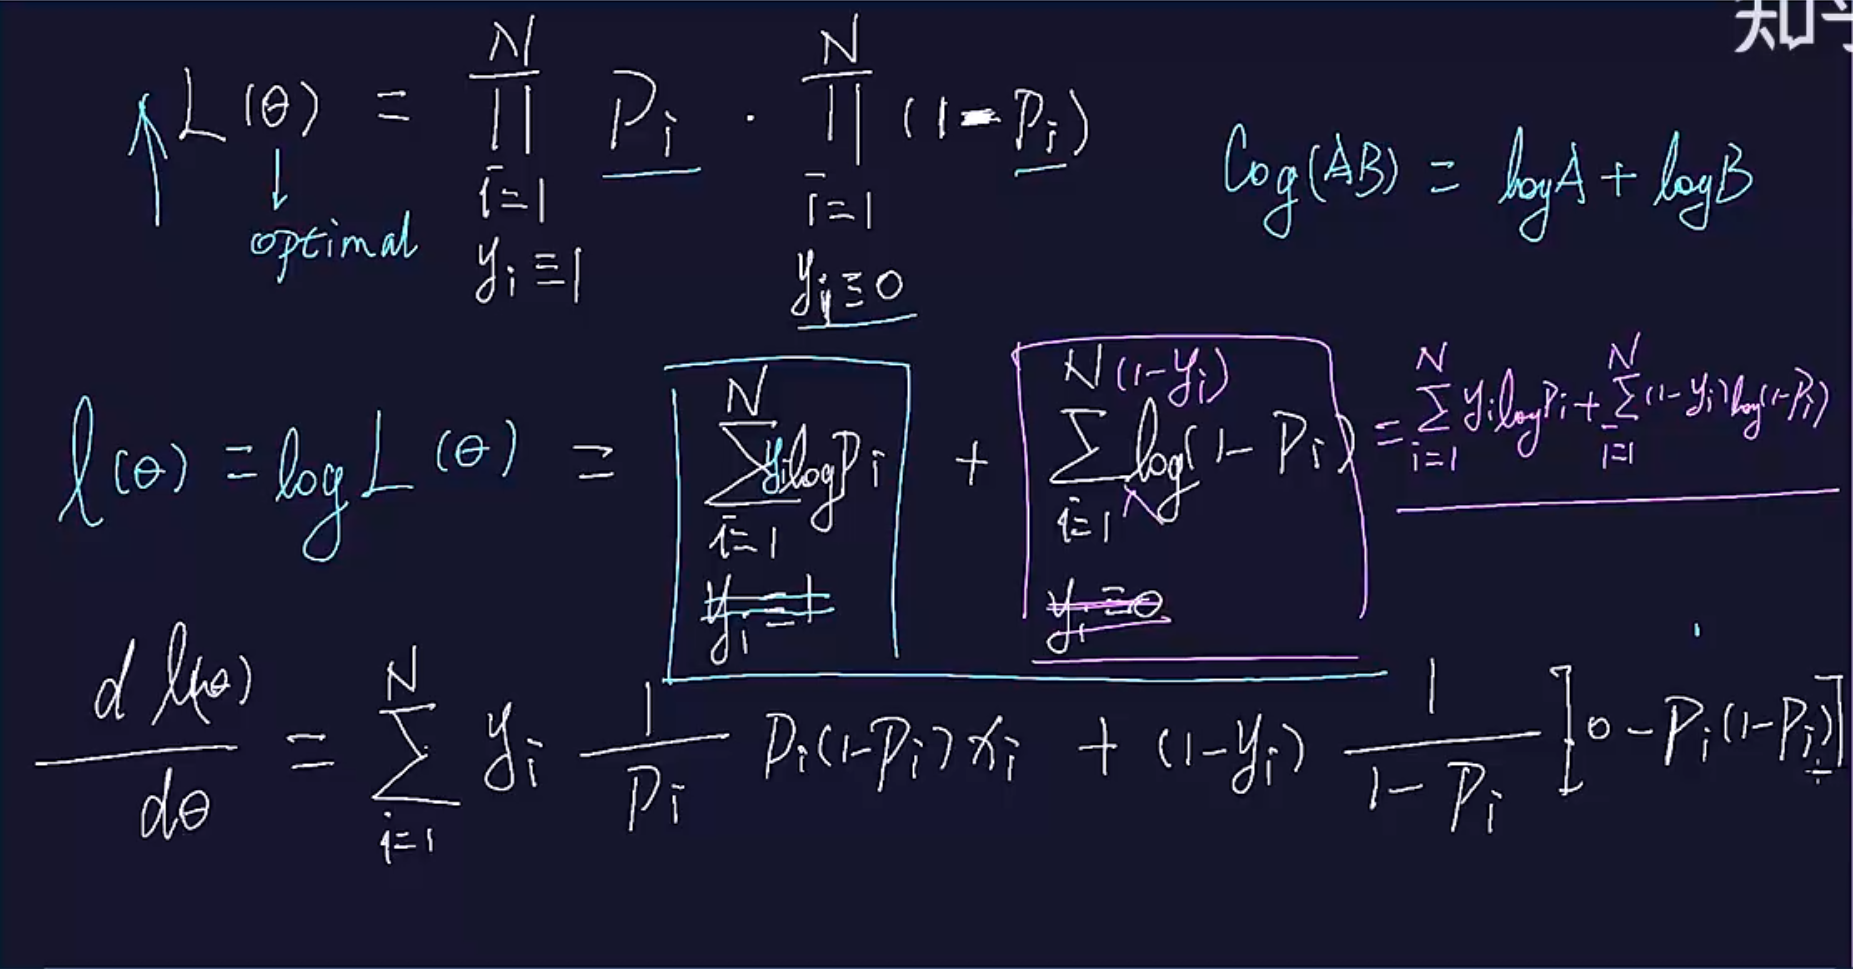 知乎
↑ L(θ) = ∏_{i=1, y_i≡1}^{N} P_i · ∏_{i=1, y_i≡0}^{N} (1-P_i)
↓
optimal
log(AB) = logA + logB
l(θ) = log L(θ) = ∑_{i=1}^{N} y_i log P_i + ∑_{i=1}^{N} (1-y_i) log(1-P_i) = ∑_{i=1}^{N} y_i log P_i + ∑_{i=1}^{N} (1-y_i) log(1-P_i)
y_i = 1
y_i ≡ 0
d l(θ) / dθ = ∑_{i=1}^{N} y_i 1/P_i P_i(1-P_i) x_i + (1-y_i) 1/(1-P_i) [0 - P_i(1-P_i)]